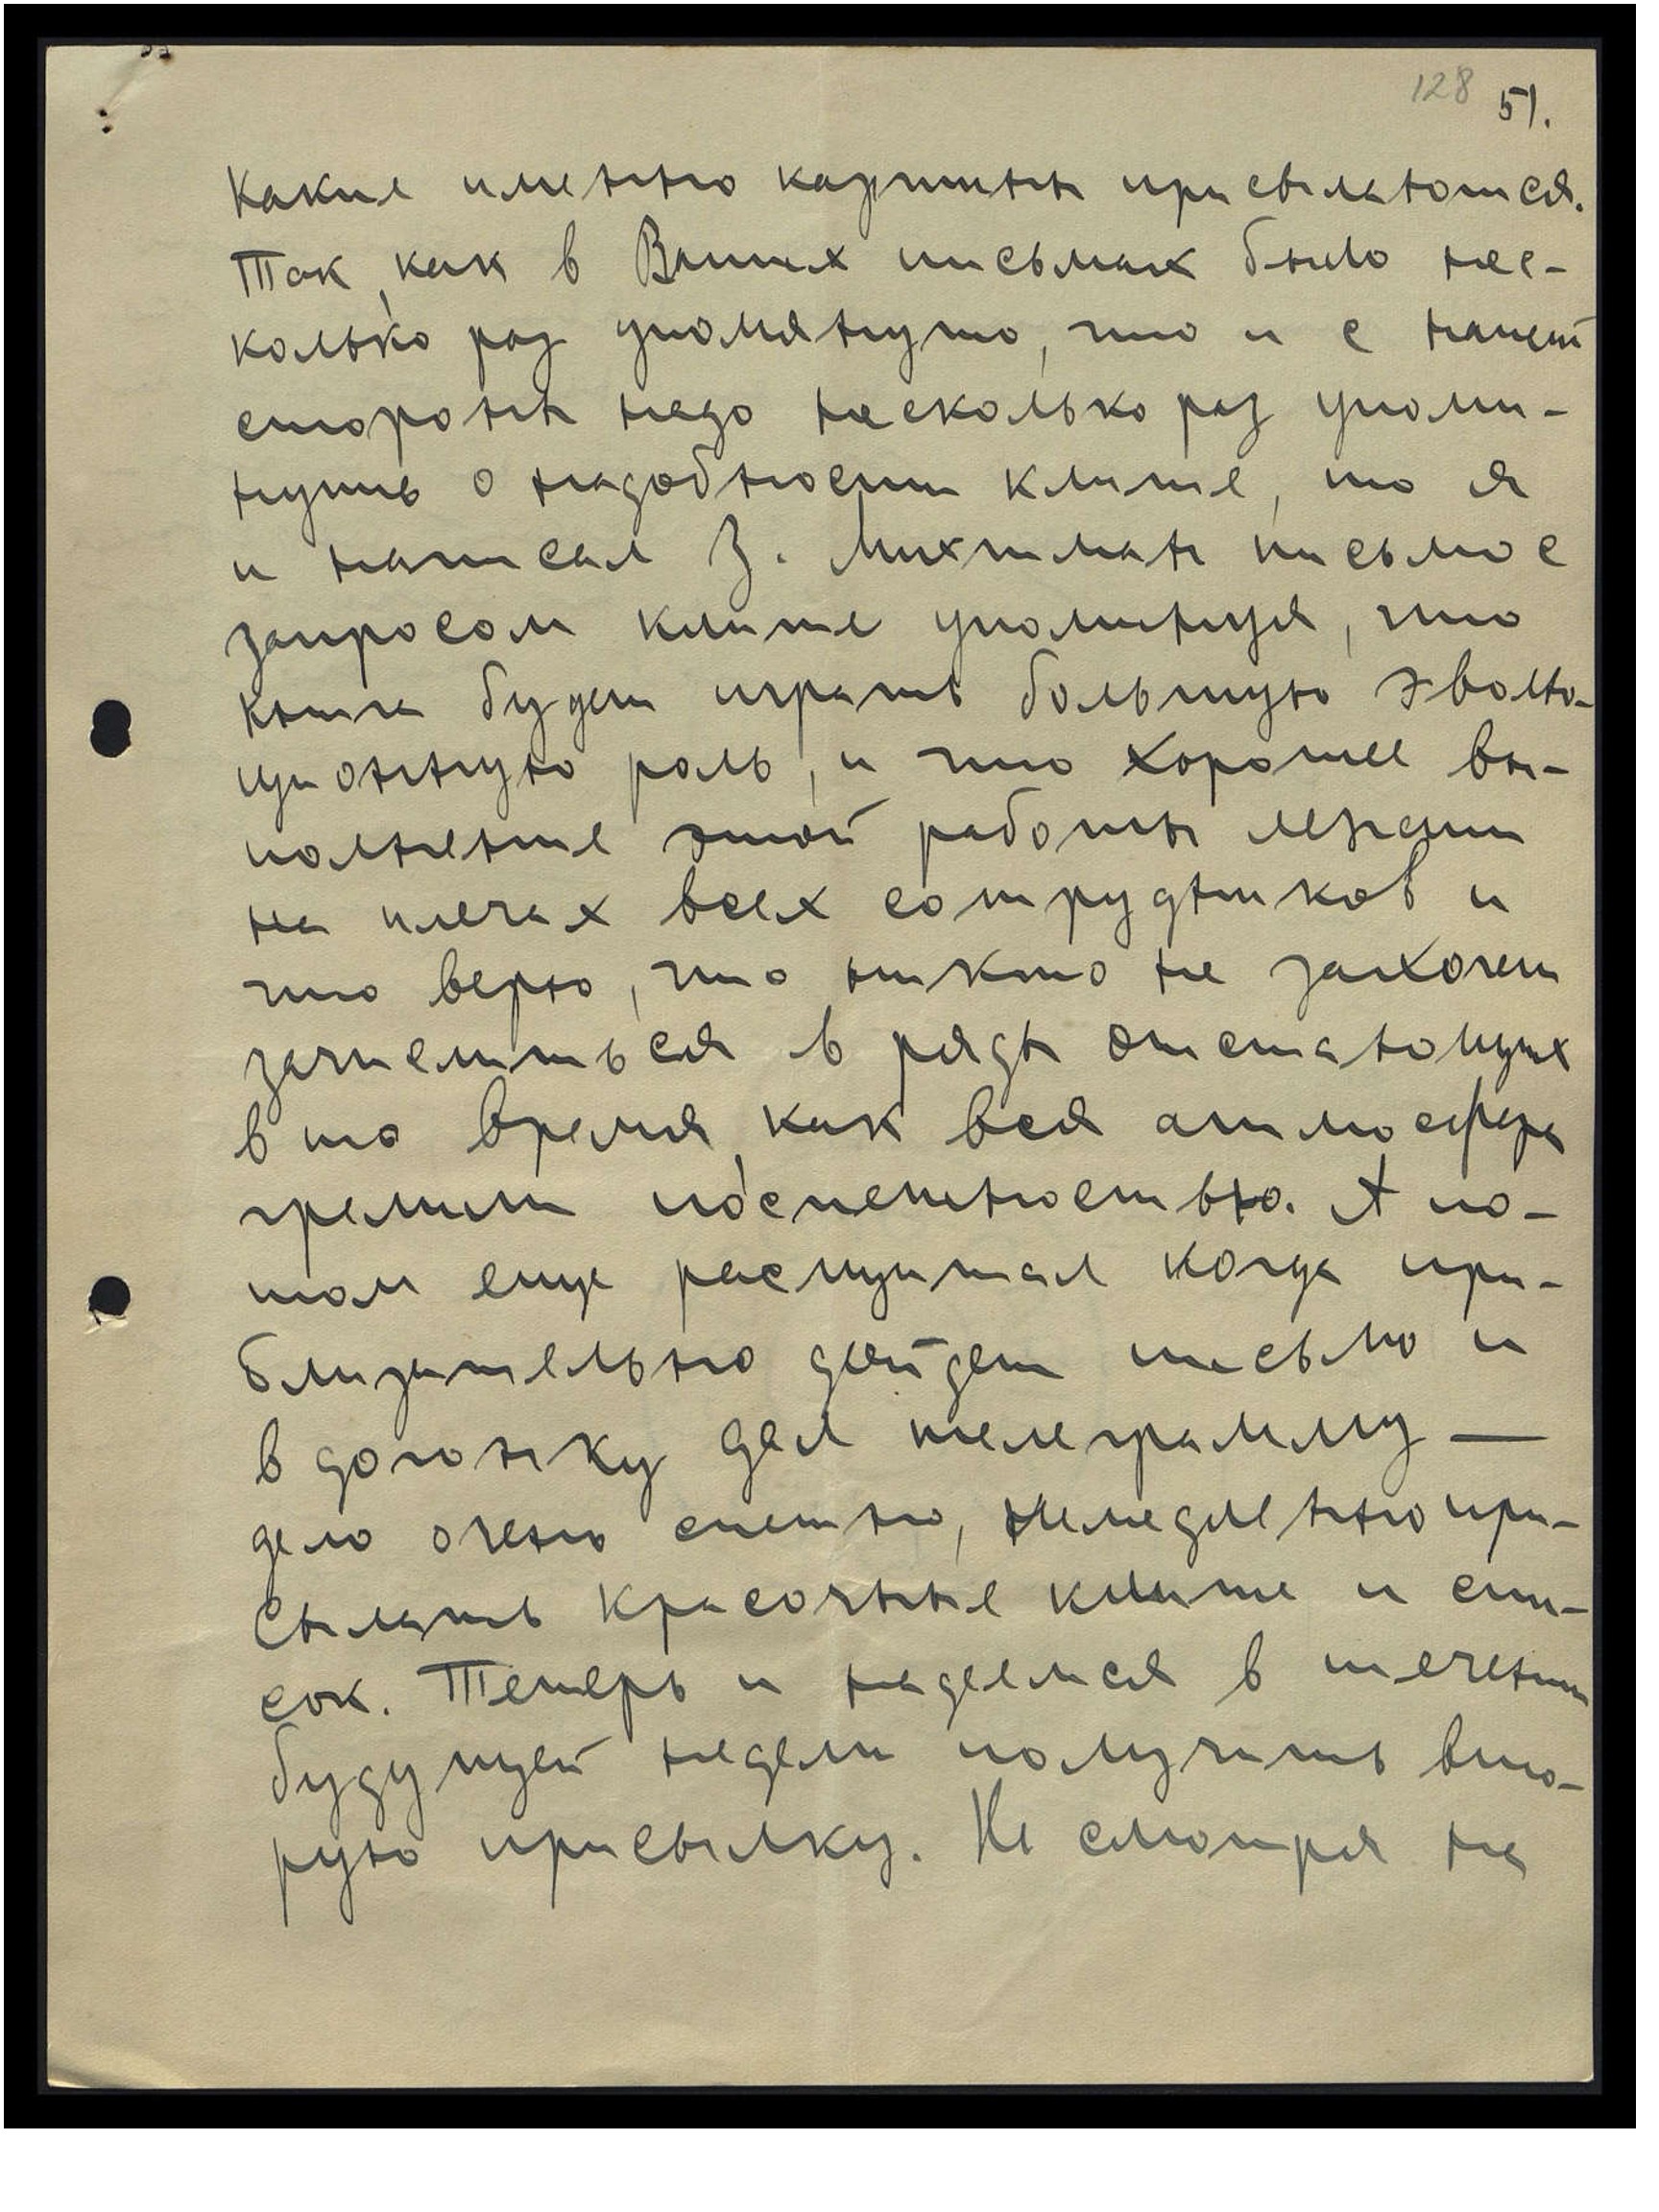 128 51.
какие именно картины присылаются.
Так, как в Ваших письмах было нес-
колько раз упомянуто, что и с нашей
стороны надо несколько раз упоми-
нуть о надобности клише, то я
и написал З. Лихтман письмо с
запросом клише упоминуя, что
книга будет играть большую эволю-
ционную роль, и что хорошее вы-
полнение этой работы лежит
на плечах всех сотрудников и
что верю, что никто не захочет
зачислиться в ряды отстающих
в то время, как вся атмосфера
гремит поспешностью. А по-
том еще расщитал когда при-
близительно дойдет письмо и
в догонку дал телеграмму —
дело очень спешно, немедленно при-
сылать красочные клише и спи-
сок. Теперь и надеемся в течении
будущей недели получить вто-
рую присылку. Не смотря на